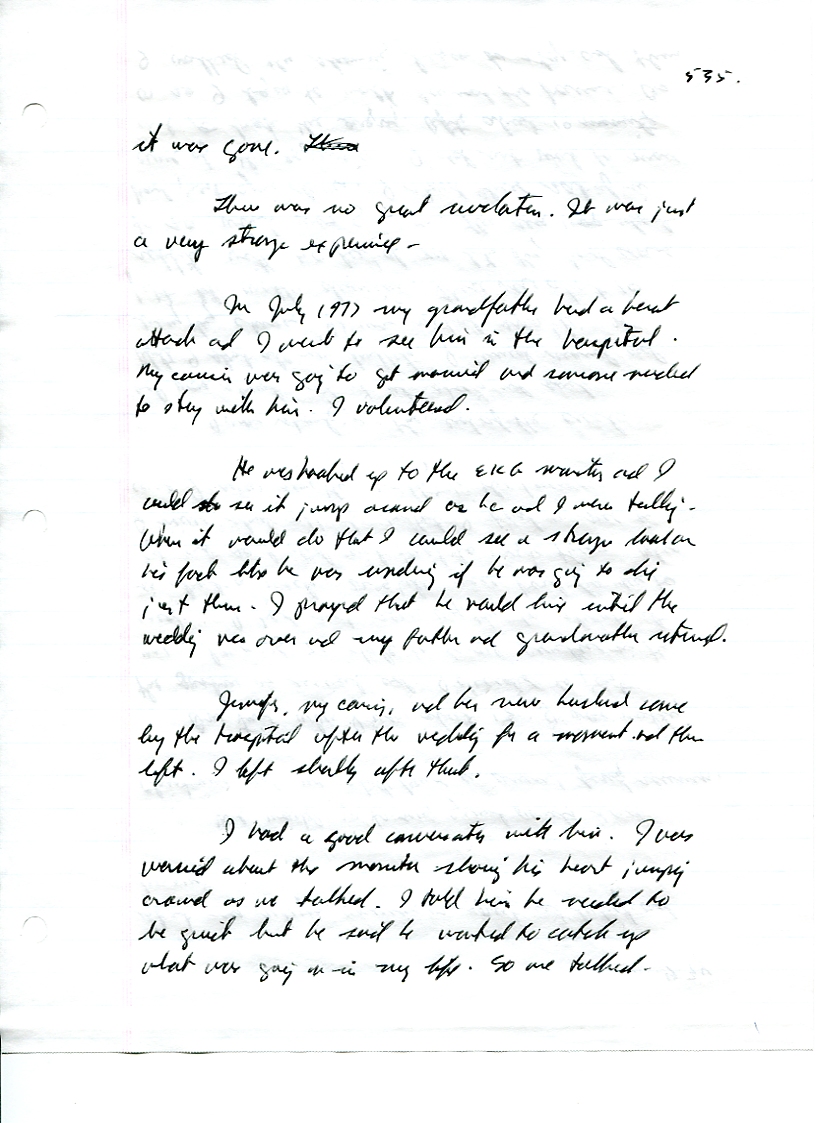 535.
it was gone.
There was no great revelation. It was just
a very strange experience -
In July 1977 my grandfather had a heart
attack and I went to see him in the hospital.
My cousin was going to get married and someone needed
to stay with him. I volunteered.
He was hooked up to the EKG monitor and I
could see it jump around as he and I were talking.
When it would do that I could see a strange look on
his face like he was wondering if he was going to die
just then. I prayed that he would live until the
wedding was over and my father and grandmother returned.
my cousin, and her new husband came
by the hospital after the wedding for a moment and then
left. I left shortly after that.
I had a good conversation with him. I was
worried about the monitor showing his heart jumping
around as we talked. I told him he needed to
be quiet but he said he wanted to catch up
what was going on in my life. So we talked.